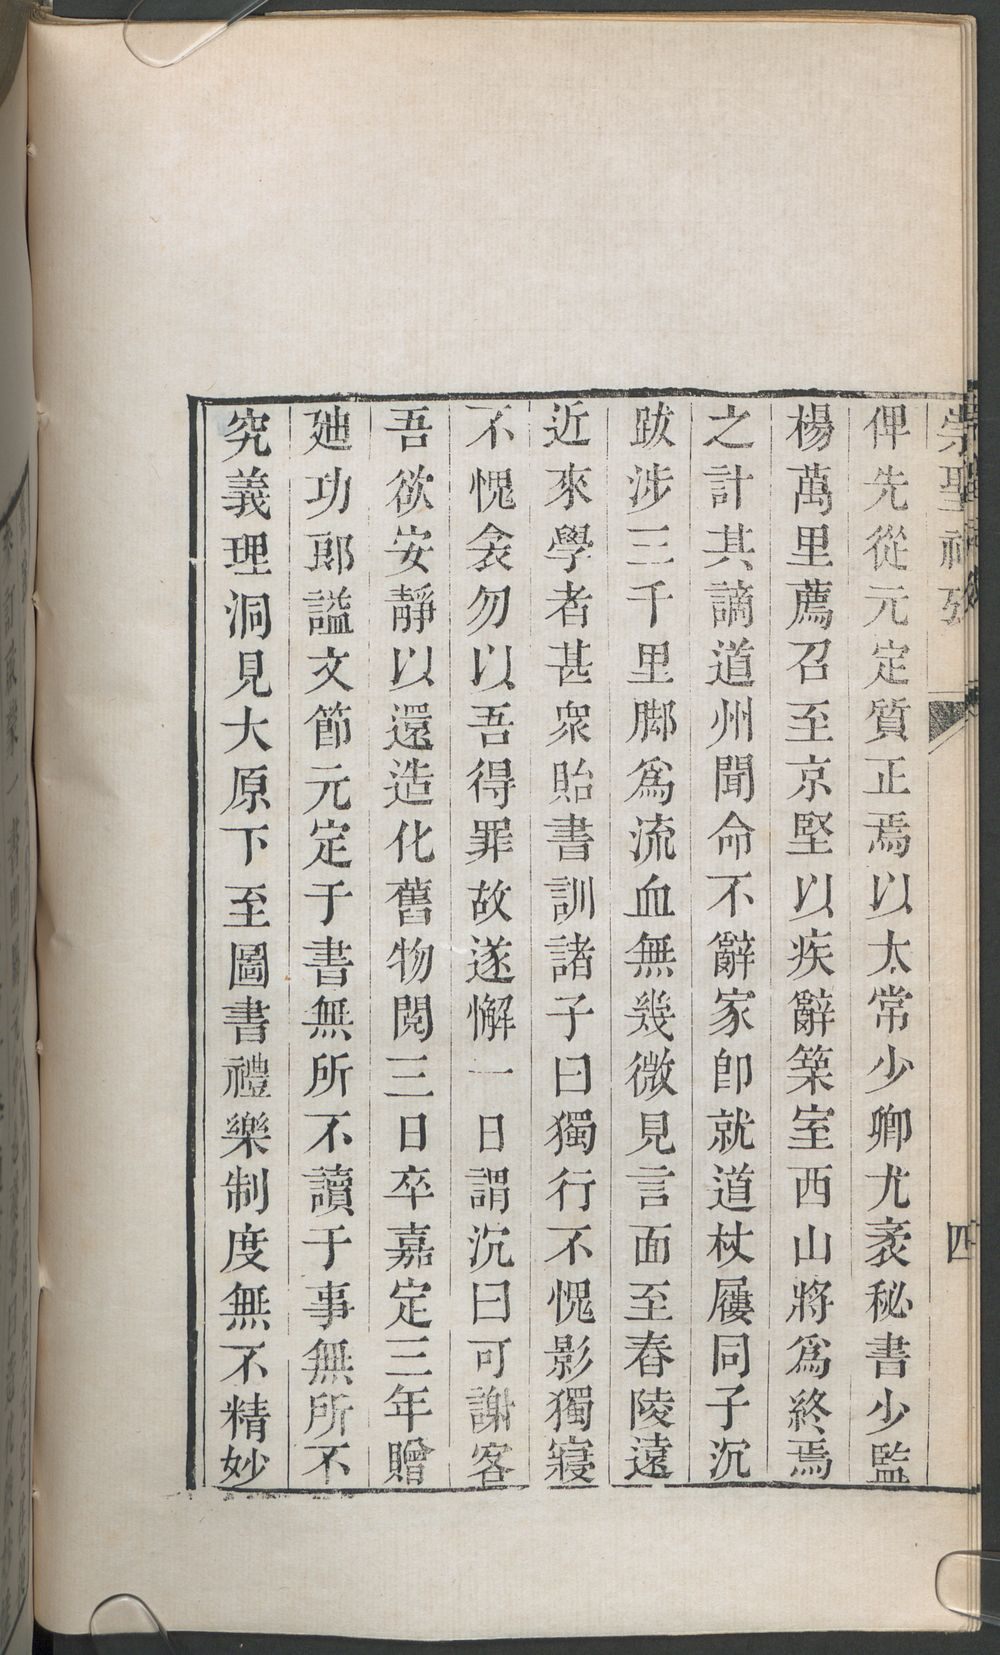 崇聖祠攷
四
俾先從元定質正焉以太常少卿尤袤秘書少監
楊萬里薦召至京堅以疾辭築室西山將爲終焉
之計其謫道州聞命不辭家卽就道杖屨同子沉
跋涉三千里脚爲流血無幾微見言面至舂陵遠
近來學者甚衆貽書訓諸子曰獨行不愧影獨寢
不愧衾勿以吾得罪故遂懈一日謂沉曰可謝客
吾欲安靜以還造化舊物閱三日卒嘉定三年贈
廸功郎謚文節元定于書無所不讀于事無所不
究義理洞見大原下至圖書禮樂制度無不精妙